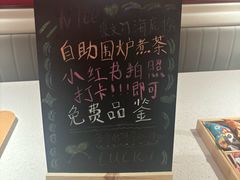 NICE
自助围炉煮茶
小红书拍照
打卡!!!即可
免费品鉴
LUCKY